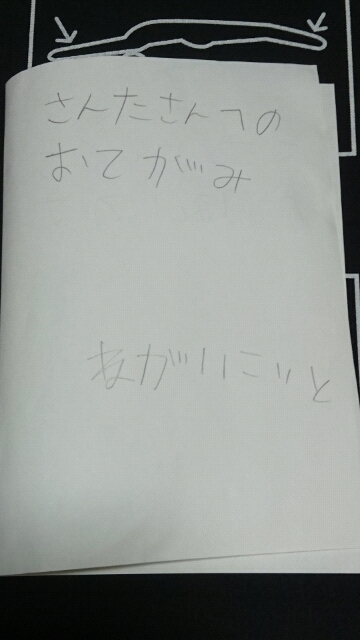 さんたさんへの
おてがみ
ねがいごと